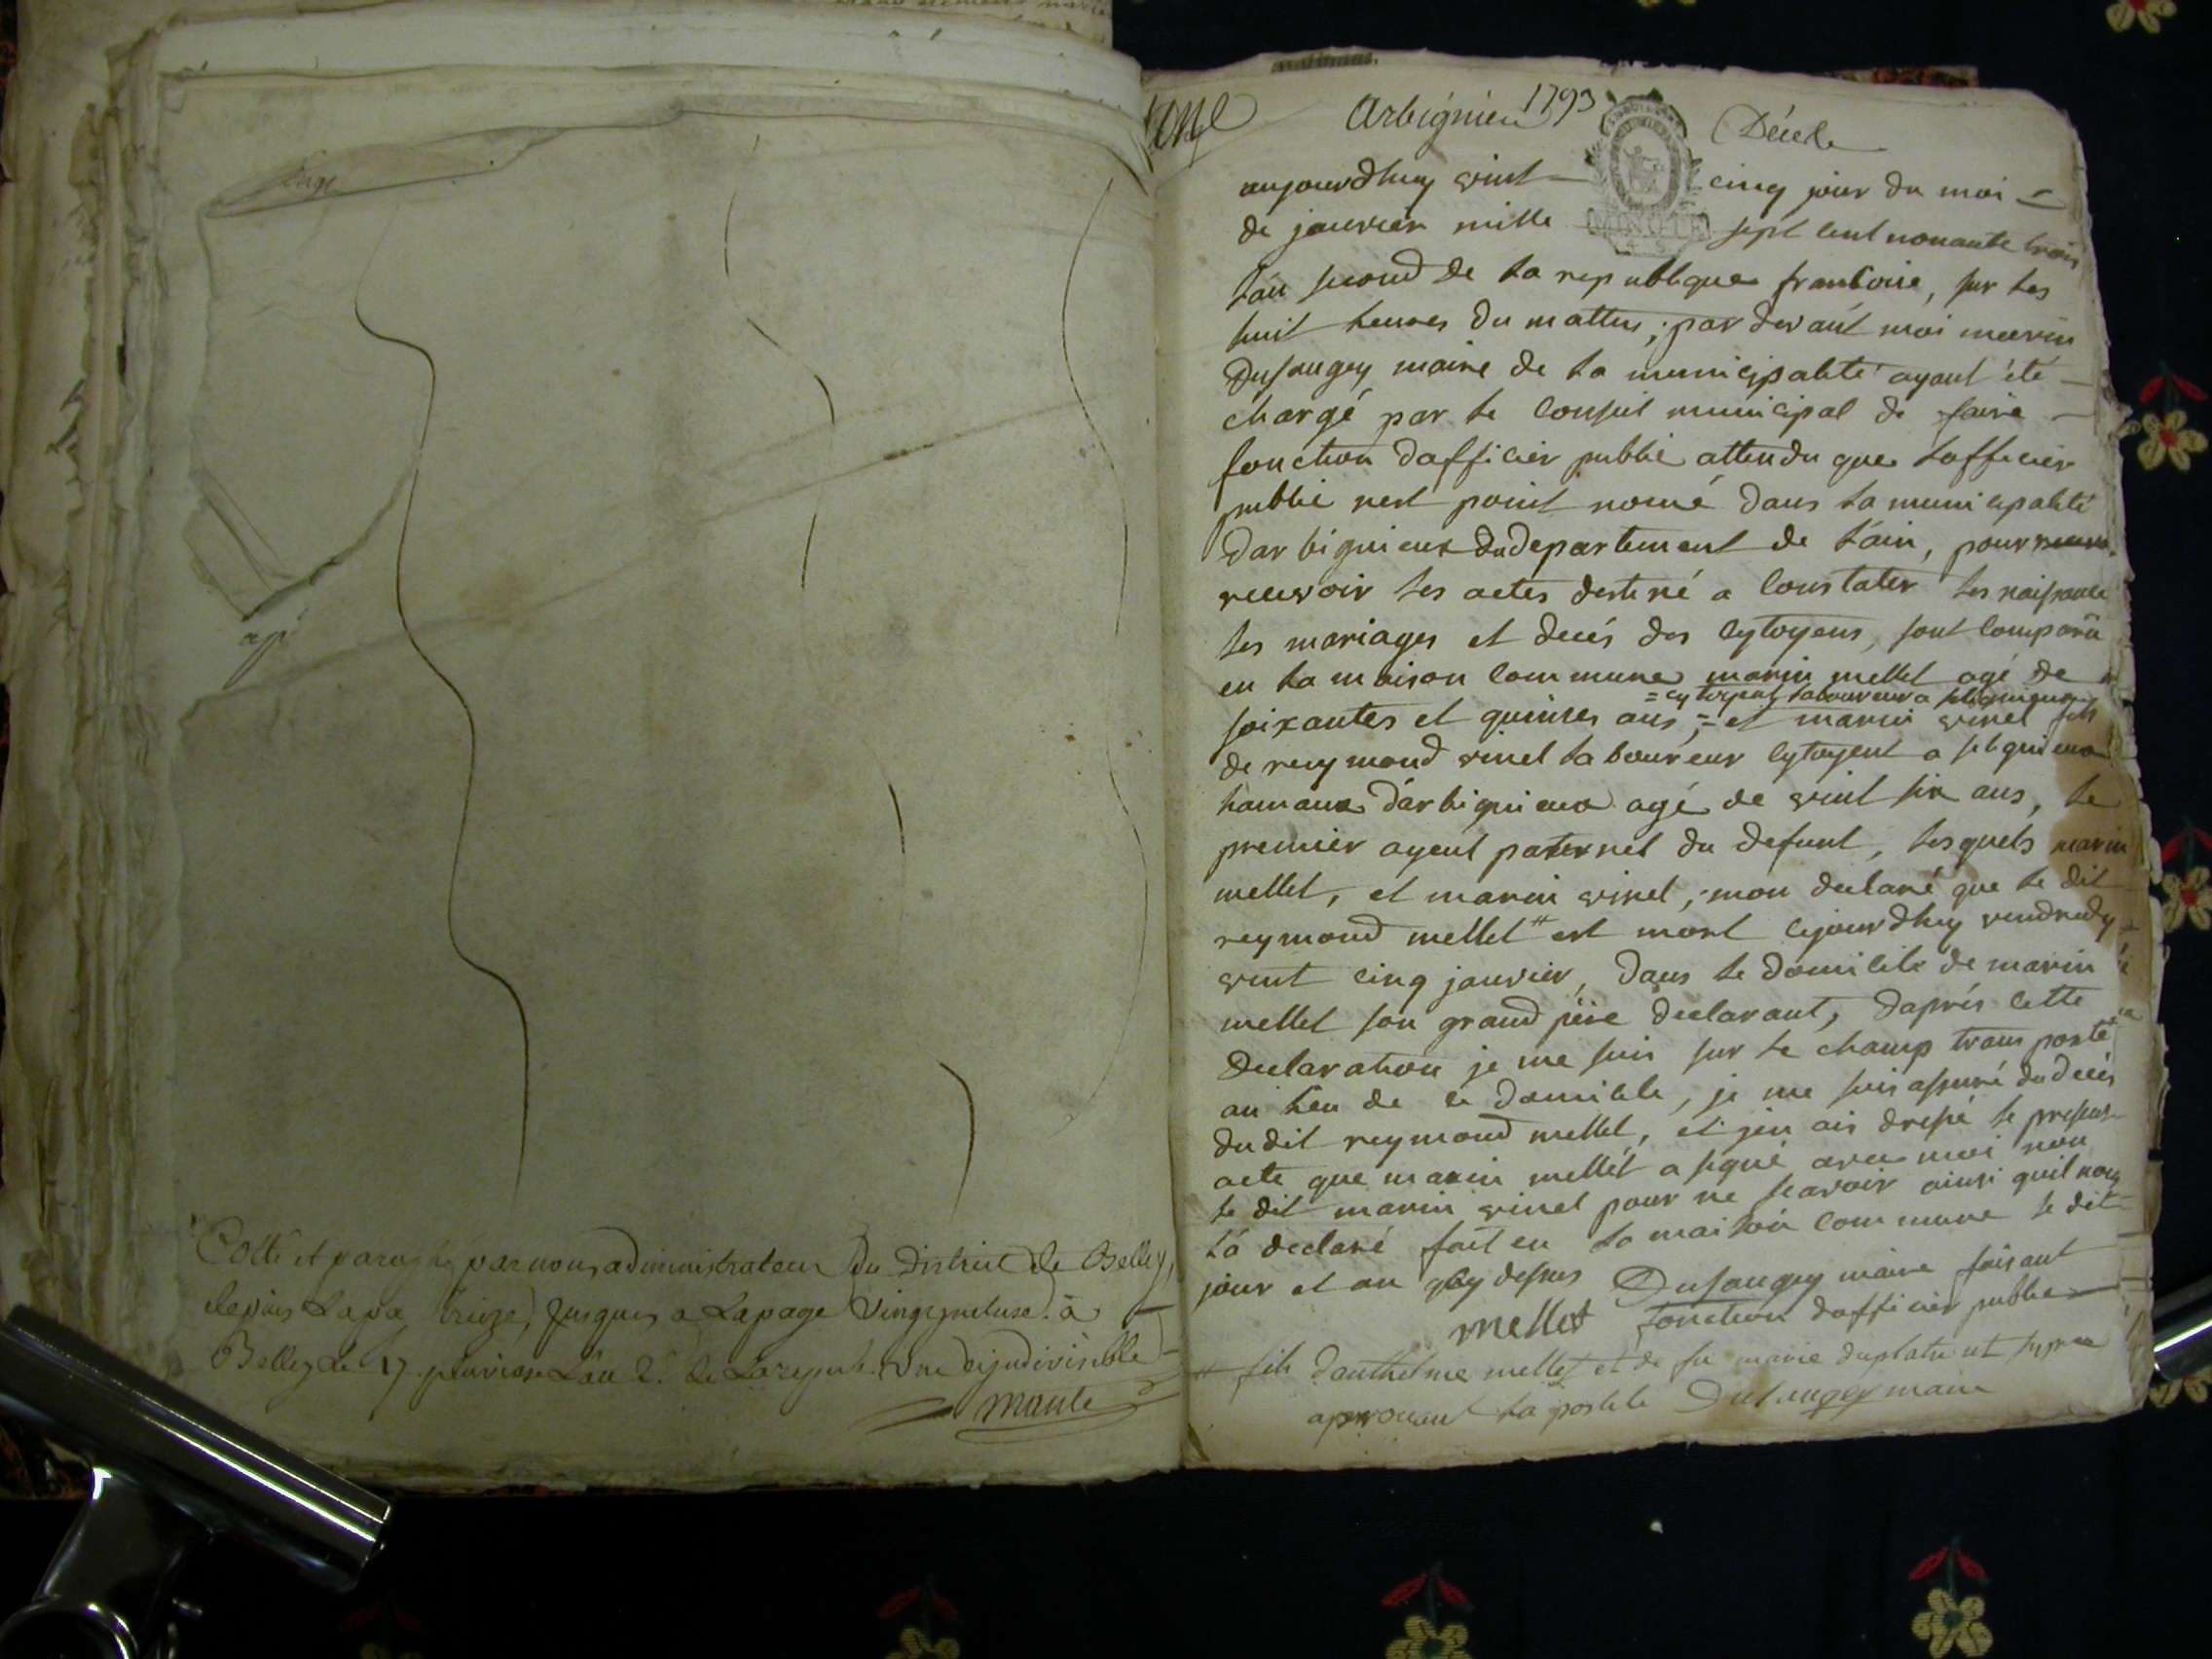 Cotté et paraphé par nous administrateur du District de Belley,
depuis La pa treize, jusques a La page vingt incluse. à
Belley Le 17 pluviose L'an 2.e de La repub. une et indivisible
mante
Arbignieu 1793
Décede
aujourdhuy vint cinq jour du moi
de janvier mille sept cent nonante trois
lan second de la republique francoise, sur les
huit heures du mattin, par devant moi marin
Dusaugey maire de la municipalité ayant été
chargé par le conseil municipal de faire
fonction dofficier public attendu que lofficier
public nest point nomé dans la municipalité
darbignieux du departement de l'ain, pour
recevoir les actes destiné a constater les naissance
les mariages et decés des cytoyens, sont comparu
en la maison commune marin mellet agé de
= cytoyent laboureur a
soixantes et quinses ans, = et marin vinel fils
de reymond vinel laboureur cytoyent a selignieux
hamaux d'arbignieux agé de vint six ans, le
premier ayeul paternel du defunt, lesquels marin
mellet, et marin vinel, mon declaré que le dit
reymond mellet # est mort cejourdhuy vendredy
vint cinq janvier, dans le domicile de marin
mellet son grand père declarant, daprés cette
declaration je me suis sur le champ transporté
au lieu de ce domicile, je me suis assuré du decés
du dit reymond mellet, et jen ais dressé le present
acte que marin mellet a signé avec moi non
le dit marin vinel pour ne scavoir ainsi quil nous
la declaré fait en la maison commune le dit
jour et an que dessus Dusaugey maire faisant
mellet fonction dofficier public
# fils danthelme mellet et de fu marie
aprouvant la postile Dusaugey maire